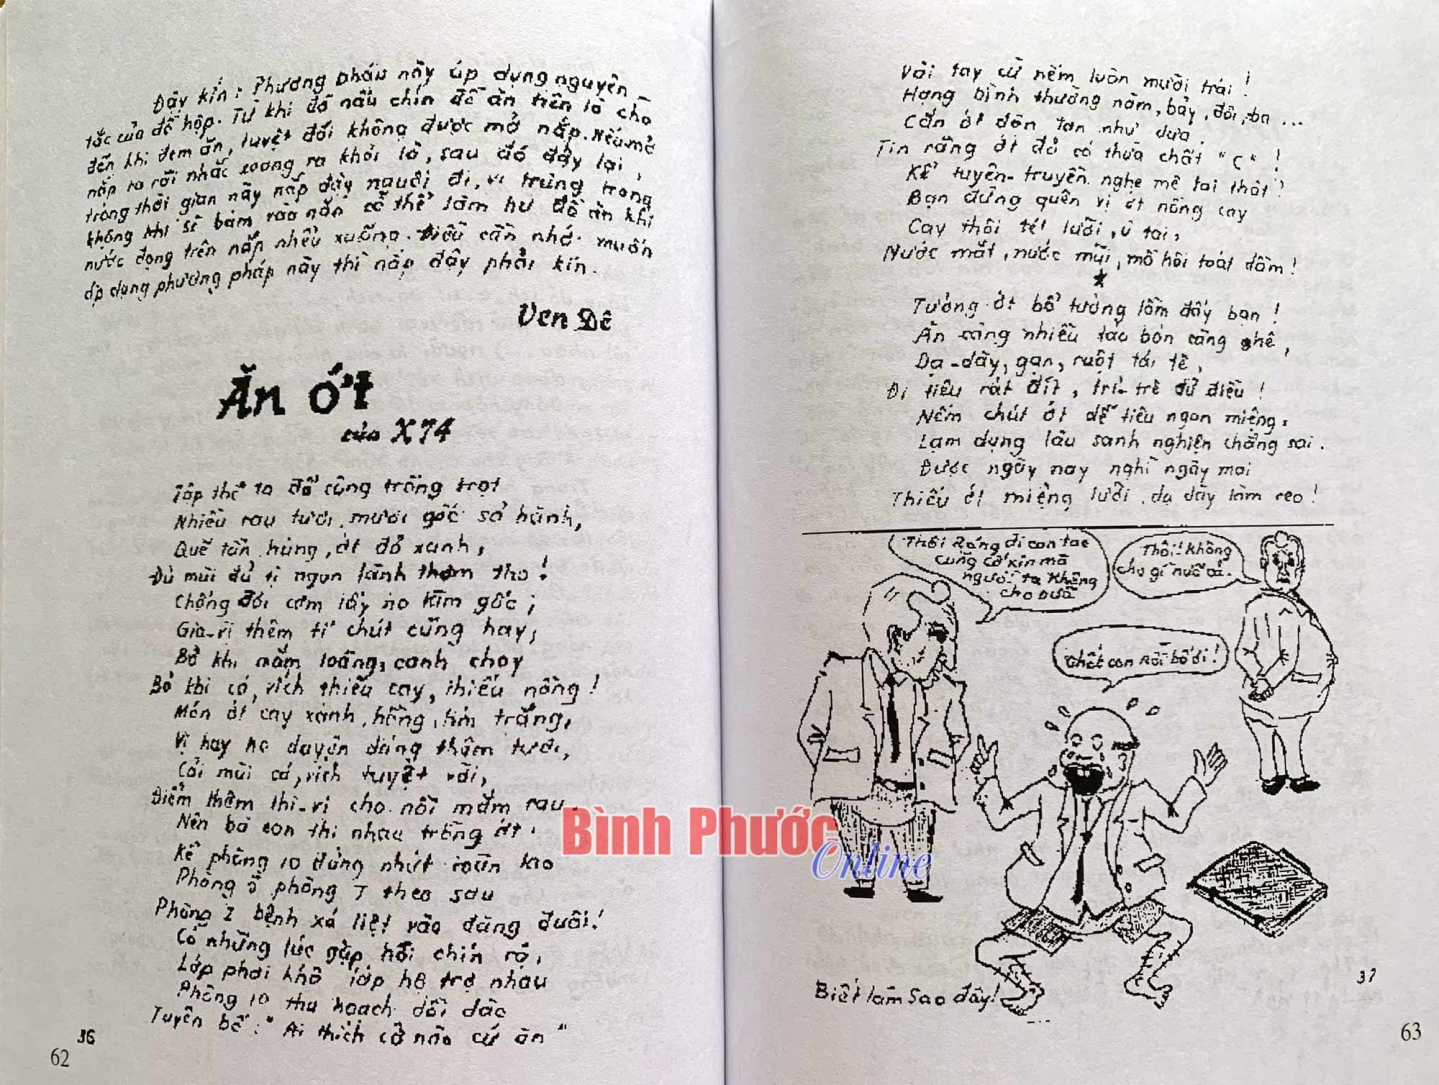 Đậy kín: Phương pháp này áp dụng nguyên
tắc của đồ hộp. Từ khi đồ nấu chín để ăn trên lò cho
đến khi đem ăn, tuyệt đối không được mở nắp. Nếu mở
nắp ra rồi nhắc xoong ra khỏi lò, sau đó đậy lại,
trong thời gian này nắp đậy nguội đi, vi trùng trong
không khí sẽ bám vào nắp có thể làm hư đồ ăn khi
nước đọng trên nắp nhểu xuống. Điều cần nhớ muốn
áp dụng phương pháp này thì nắp đậy phải kín.
Ven Đê
Ăn ớt
của X74
Tập thể ta đổ công trồng trọt
Nhiều rau tươi, mươi gốc sả hành,
Quế tần hùng, ớt đỏ xanh,
Đủ mùi đủ vị ngon lành thơm tho!
Chống đói cơm lấy no làm gốc;
Gia-vị thêm tí chút cũng hay,
Bỏ khi mắm loãng, canh chay
Bỏ khi cá, rích thiếu cay, thiếu nồng!
Món ớt cay xanh, hồng, tím trắng,
Vị hay ho duyên dáng thậm tươi,
Cải mùi cá, rích tuyệt vời,
Điểm thêm thi-vị cho nồi mắm rau.
Nên bà con thi nhau trồng ớt.
Kể phòng 10 đứng nhứt
Phòng 6 phòng 7 theo sau
Phòng 2 bệnh xá liệt vào đàng đuôi!
Có những lúc gặp hồi chín rộ,
Lớp phơi khô lớp hộ trợ nhau
Phòng 10 thu hoạch dồi dào
Tuyên bố: "Ai thích cỡ nào cứ ăn"
36
62
Vài tay cừ nếm luôn mười trái!
Hạng bình thường năm, bảy, đôi, ba ...
Cắn ớt dòn tan như dưa,
Tin rằng ớt đỏ có thừa chất "C"!
Kể tuyên-truyền nghe mê tai thật?
Bạn đừng quên vị ớt nồng cay
Cay thôi tét lưỡi, ù tai,
Nước mắt, nước mũi, mồ hôi toát dầm!
*
Tưởng ớt bổ tưởng lầm đấy bạn!
Ăn càng nhiều táo bón càng ghê,
Dạ-dày, gan, ruột tái tê,
Đi tiêu rát đít, trĩ-trê đủ điều!
Nếm chút ớt dễ tiêu ngon miệng,
Lạm dụng lâu sanh nghiện chẳng sai.
Được ngày nay nghĩ ngày mai
Thiếu ớt miệng lưỡi, dạ dày làm reo!
Thôi Ráng đi con tao
cũng cố xin mà
người ta không
cho nữa
Thôi! không
cho gì nữa cả.
Chết con Rồi bố ơi!
Biết làm Sao đây!
37
63
Bình Phước
Online